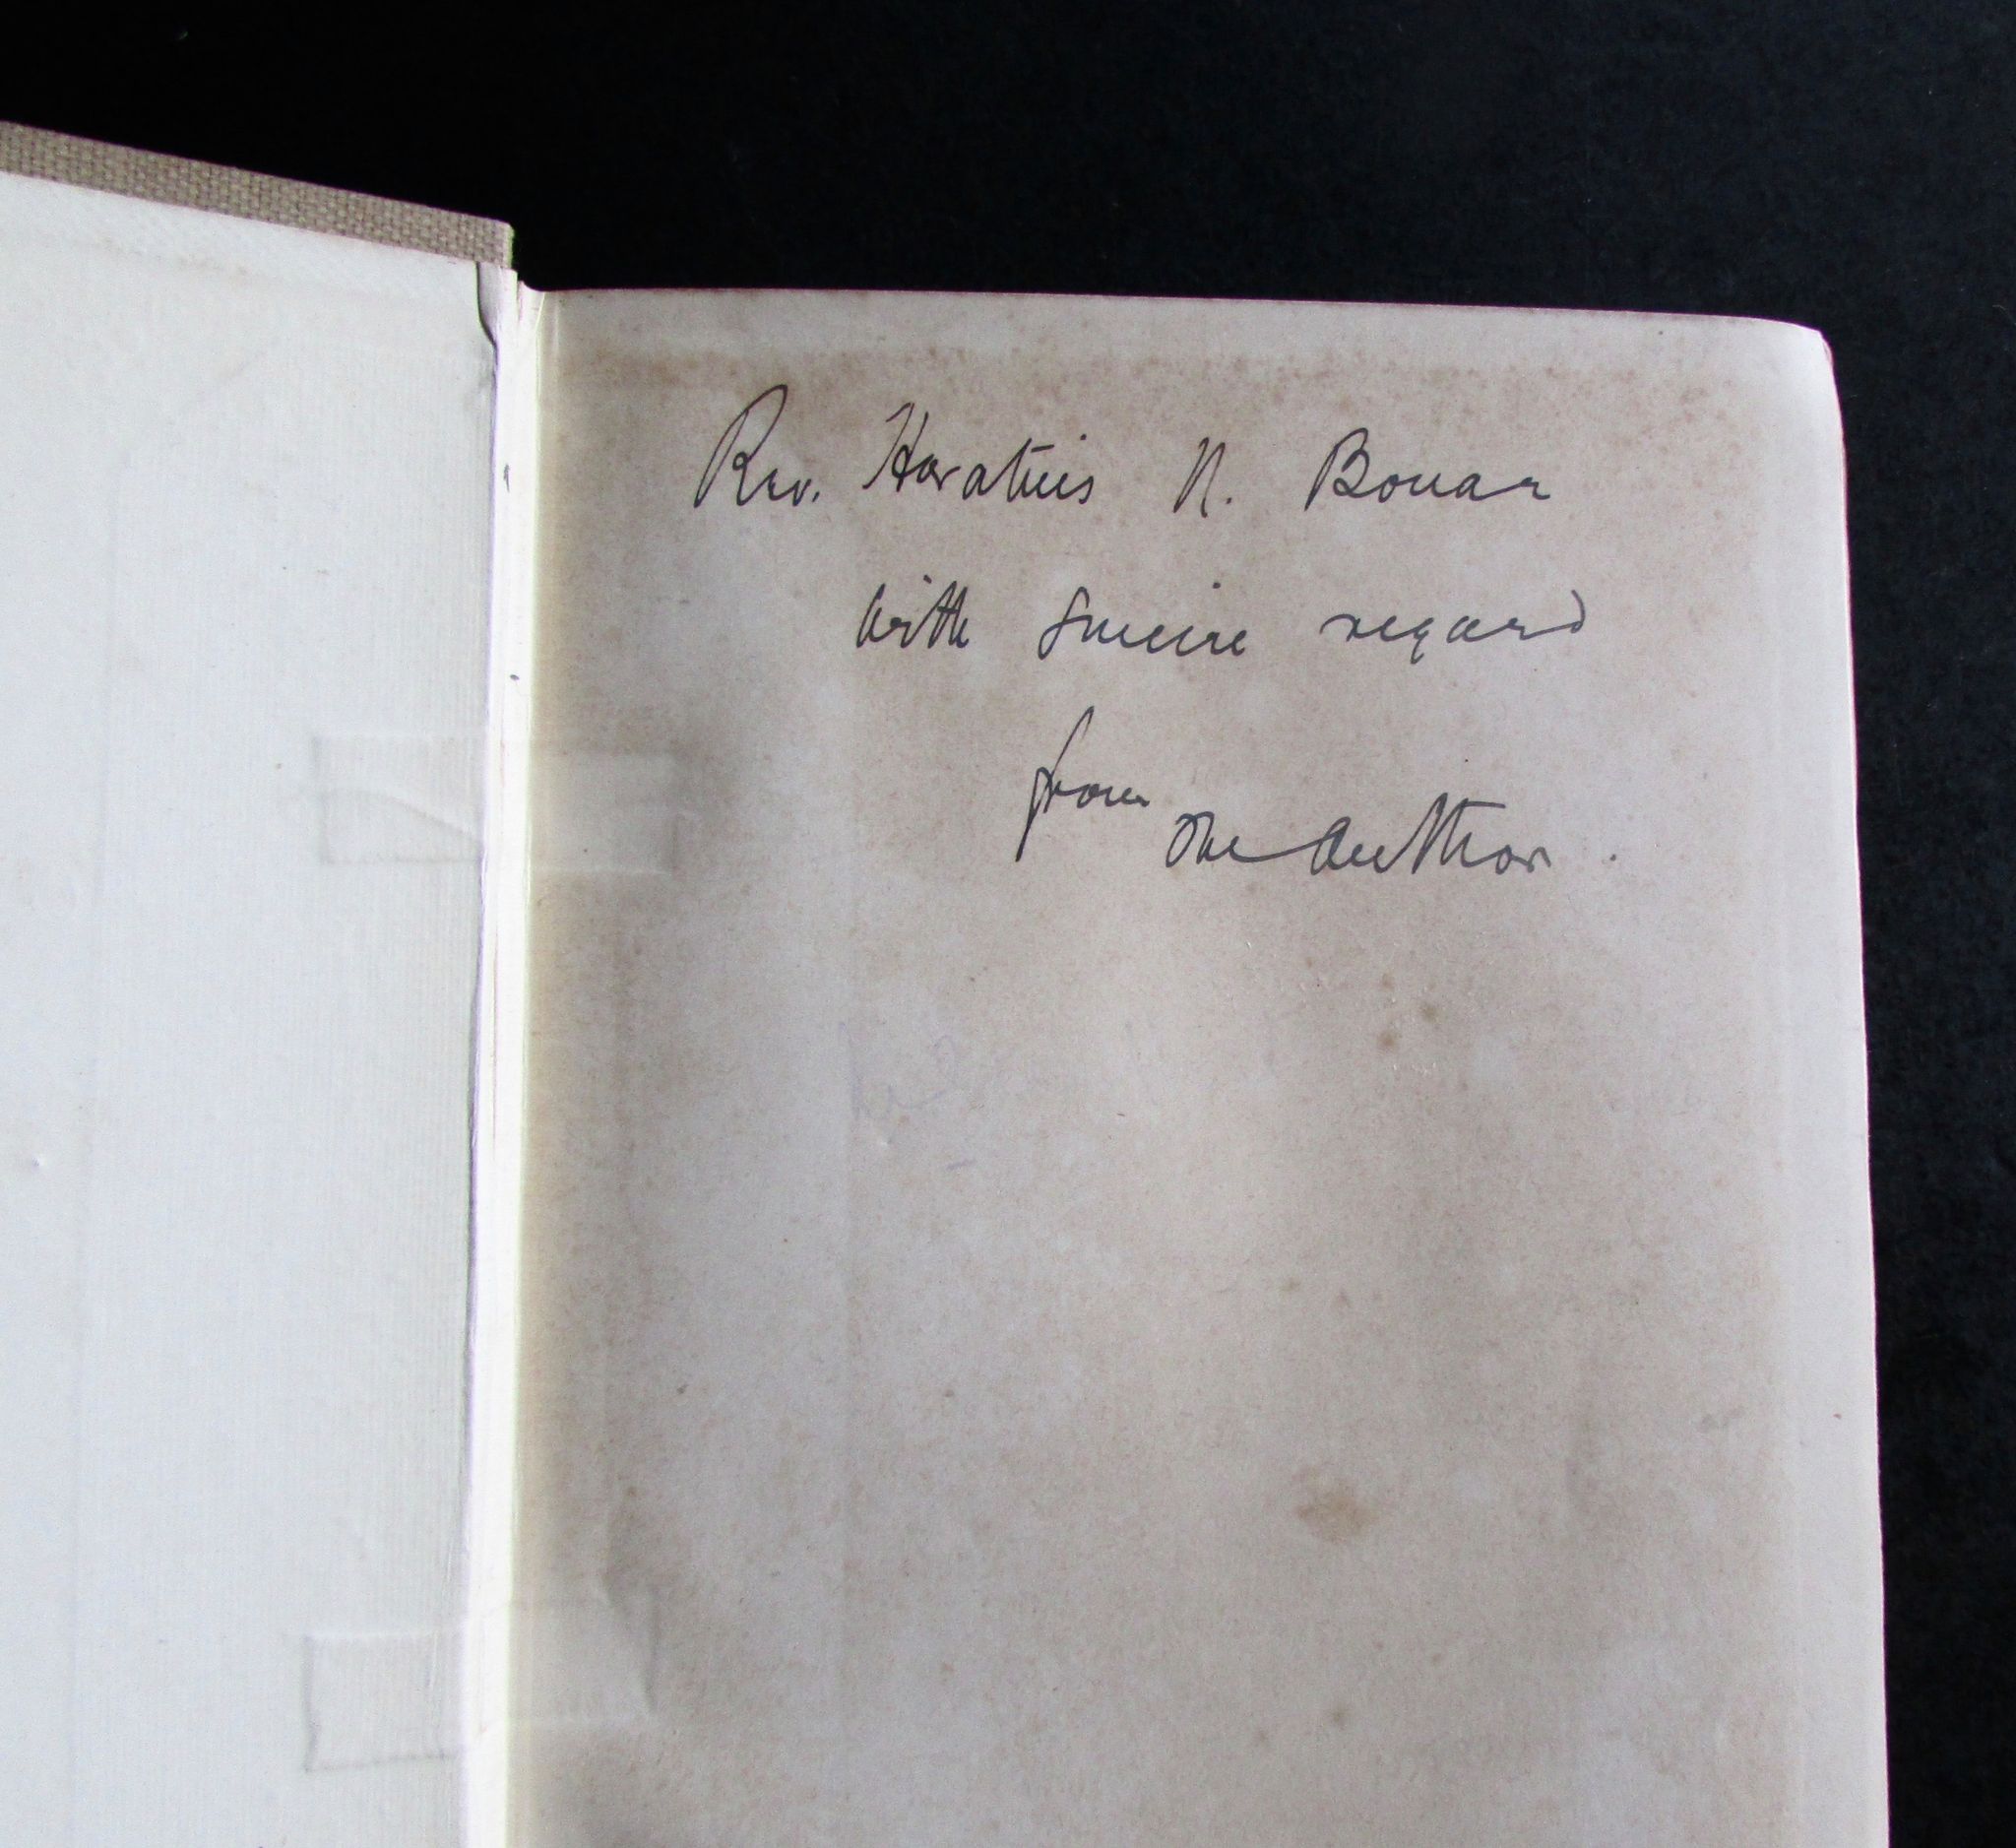 Rev. Horatius N. Bonar
with sincere regard
from
The Author.